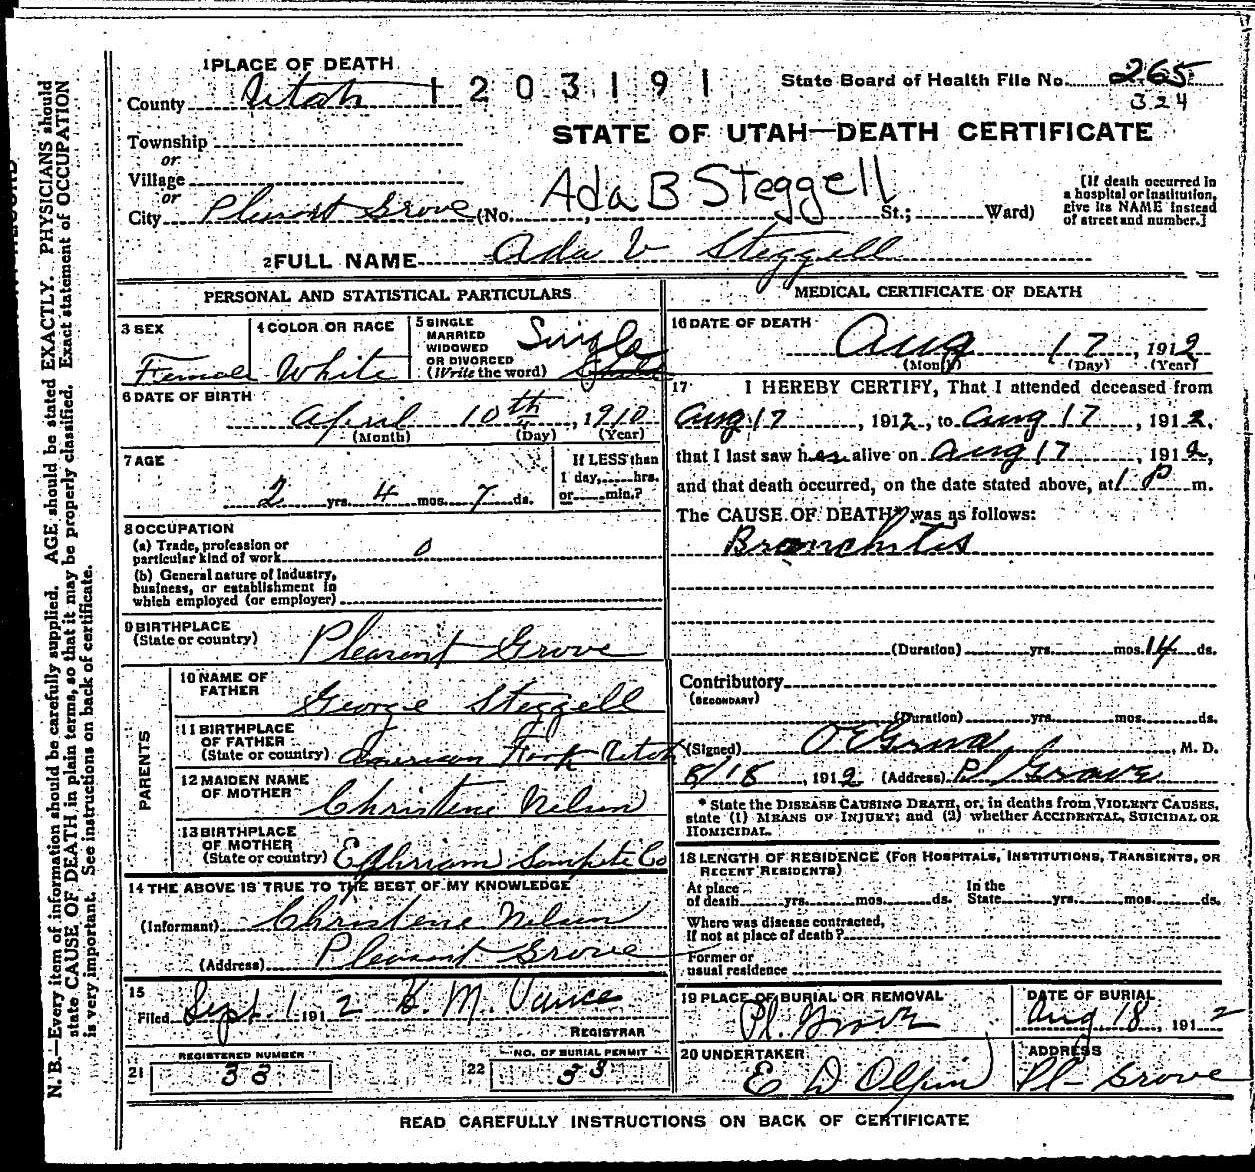 1 PLACE OF DEATH
County Utah 1203191
State Board of Health File No. 265
324
Township
or
Village
or
City Pleasant Grove (No. St.; Ward)
STATE OF UTAH—DEATH CERTIFICATE
Ada B Steggell
[If death occurred in
a hospital or institution,
give its NAME instead
of street and number.]
2 FULL NAME Ada V Steggell
PERSONAL AND STATISTICAL PARTICULARS
3 SEX
Female
4 COLOR OR RACE
White
5 SINGLE
MARRIED
WIDOWED
OR DIVORCED
(Write the word)
Single
6 DATE OF BIRTH
April 10th, 1910
(Month) (Day) (Year)
7 AGE
2 yrs. 4 mos. 7 ds.
If LESS than
1 day, hrs.
or min.?
8 OCCUPATION
(a) Trade, profession or
particular kind of work 0
(b) General nature of Industry,
business, or establishment in
which employed (or employer)
9 BIRTHPLACE
(State or country) Pleasant Grove
PARENTS
10 NAME OF
FATHER George Steggell
11 BIRTHPLACE
OF FATHER
(State or country) American Fork Utah
12 MAIDEN NAME
OF MOTHER Christene Nelson
13 BIRTHPLACE
OF MOTHER
(State or country) Ephriam Sanpete Co
14 THE ABOVE IS TRUE TO THE BEST OF MY KNOWLEDGE
(Informant) Christene Nelson
(Address) Pleasant Grove
15
Filed Sept. 1 1912 H. M. Vance
REGISTRAR
REGISTERED NUMBER
21 38
NO. OF BURIAL PERMIT
22 38
MEDICAL CERTIFICATE OF DEATH
16 DATE OF DEATH
Aug 17, 1912
(Month) (Day) (Year)
17 I HEREBY CERTIFY, That I attended deceased from
Aug 17, 1912, to Aug 17, 1912,
that I last saw her alive on Aug 17, 1912,
and that death occurred, on the date stated above, at 1 P m.
The CAUSE OF DEATH* was as follows:
Bronchitis
(Duration) yrs. mos. 14 ds.
Contributory
(SECONDARY)
(Duration) yrs. mos. ds.
(Signed) , M. D.
8/18, 1912 (Address) Pl Grove
* State the DISEASE CAUSING DEATH, or, in deaths from VIOLENT CAUSES,
state (1) MEANS OF INJURY; and (2) whether ACCIDENTAL, SUICIDAL OR
HOMICIDAL.
18 LENGTH OF RESIDENCE (FOR HOSPITALS, INSTITUTIONS, TRANSIENTS, OR
RECENT RESIDENTS)
At place
of death yrs. mos. ds.
In the
State yrs. mos. ds.
Where was disease contracted,
If not at place of death?
Former or
usual residence
19 PLACE OF BURIAL OR REMOVAL
Pl. Grove
DATE OF BURIAL
Aug. 18, 1912
20 UNDERTAKER
E D Olpin
ADDRESS
Pl- Grove
READ CAREFULLY INSTRUCTIONS ON BACK OF CERTIFICATE
N. B.—Every item of information should be carefully supplied. AGE should be stated EXACTLY. PHYSICIANS should
state CAUSE OF DEATH in plain terms, so that it may be properly classified. Exact statement of OCCUPATION
is very important. See instructions on back of certificate.